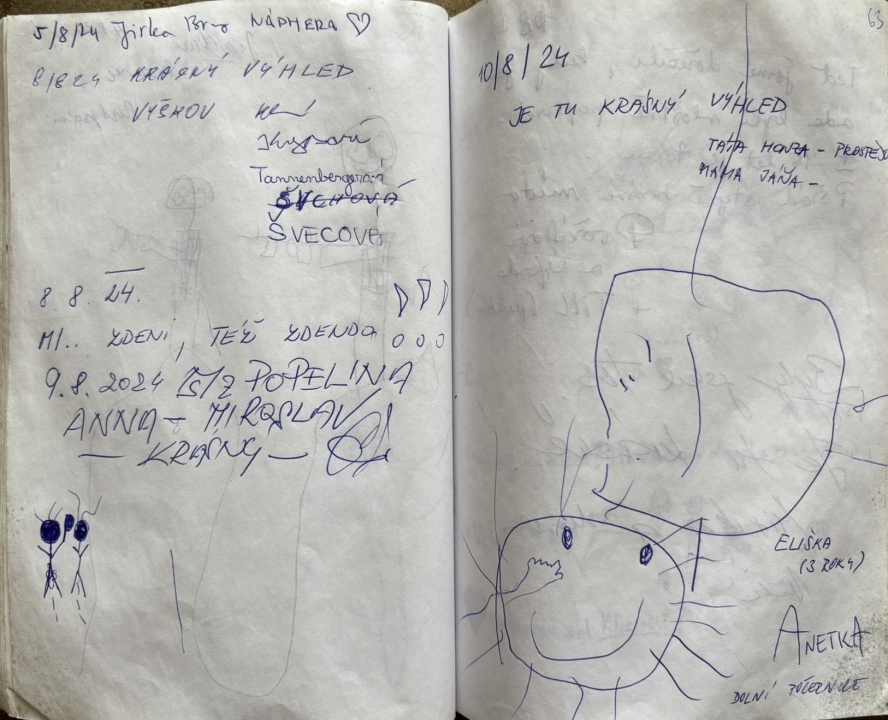 5/8/24 Jirka Brno NÁDHERA ♡
8/8 24 KRÁSNÝ VÝHLED
VYŠKOV
Tannenbergerová
ŠVECHOVÁ
ŠVECOVÁ
8. 8. 24.
MI.. ZDENI, TÉŽ ZDENDA !!!
9.8.2024 POPELINA
ANNA - MIROSLAV
- KRÁSNÝ -
63
10/8/24
JE TU KRÁSNÝ VÝHLED
TÁTA HONZA - PROSTĚJO
MÁMA JÁŇA -
ELIŠKA
(3 ROKY)
ANETKA
DOLNÍ